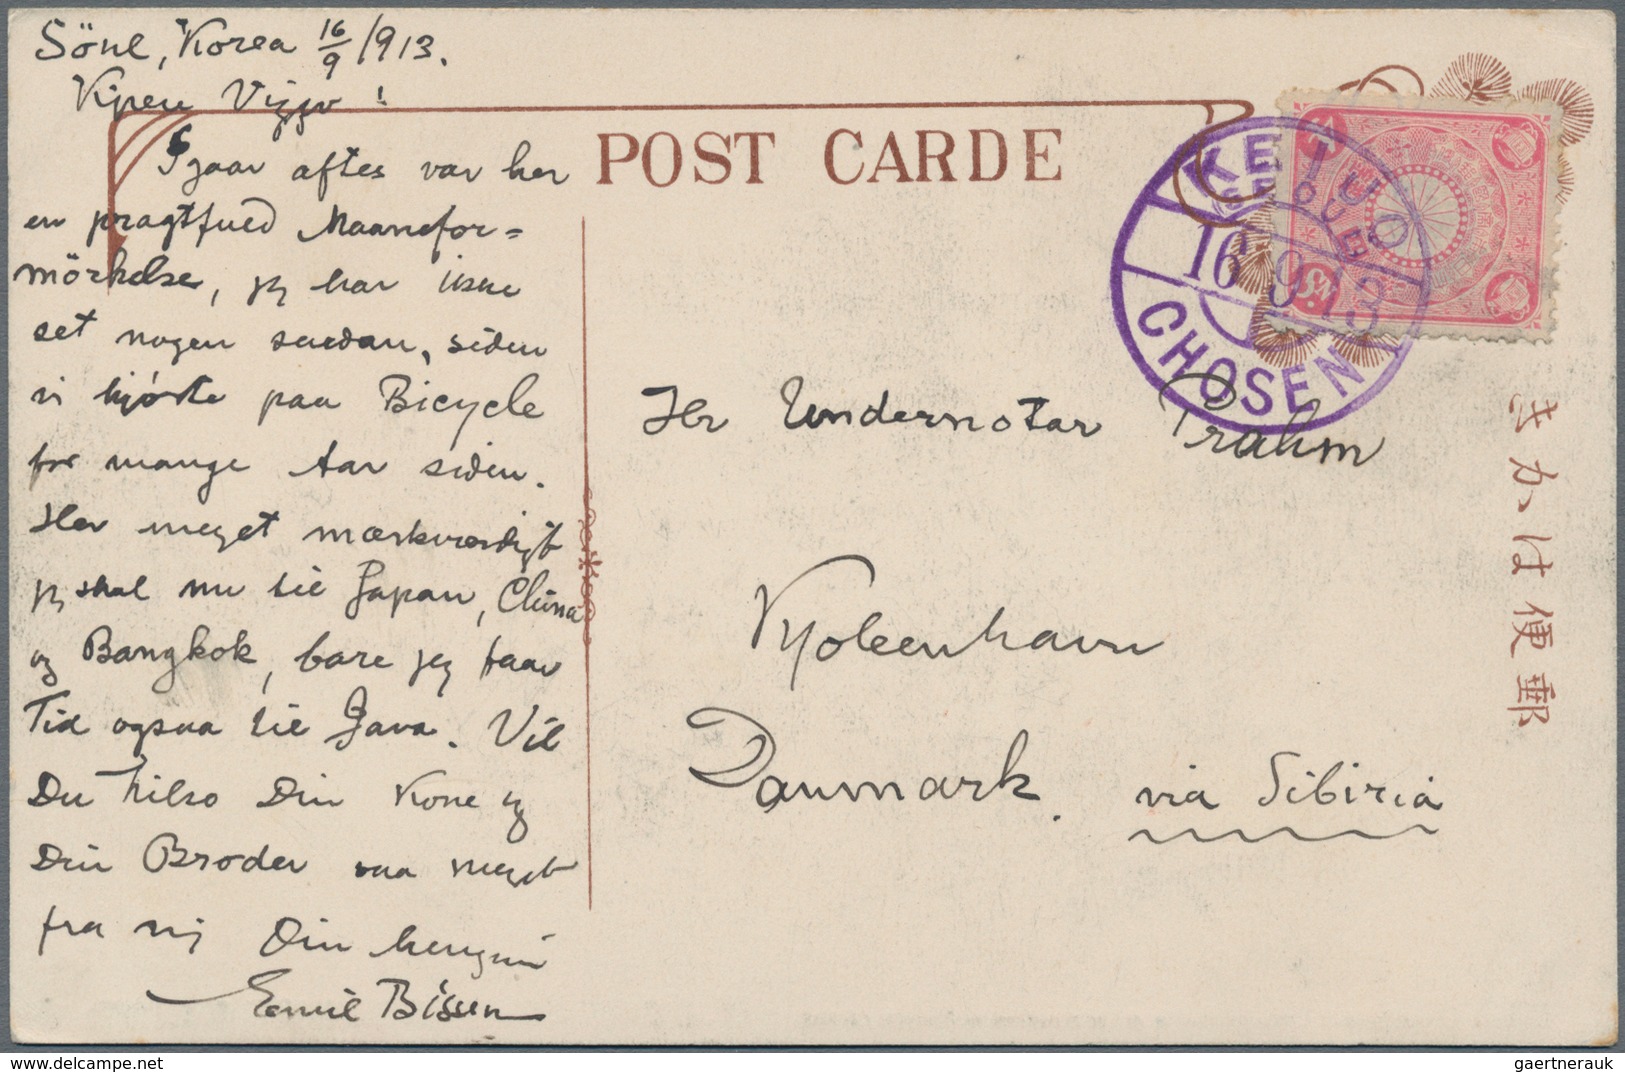 Söul, Korea 16/9/913.
Kjære Viggo!
Igaar aftes var her
en pragtfuld Maanefor=
mörkelse, jeg har ikke
set nogen saadan, siden
vi kjørte paa Bicycle
for mange Aar siden.
Her meget mærkværdigt
jeg skal nu til Japan, China
og Bangkok, bare jeg faar
Tid ogsaa til Java. Vil
Du hilse Din Kone og
Din Broder saa meget
fra mig Din hengivne
Emil Bissen
POST CARDE
KEIJO
SEOUL
16.9.13
CHOSEN
Hr Undernotar Prahm
Kjøbenhavn
Danmark. via Sibiria
きかは便郵
gaertnerauk